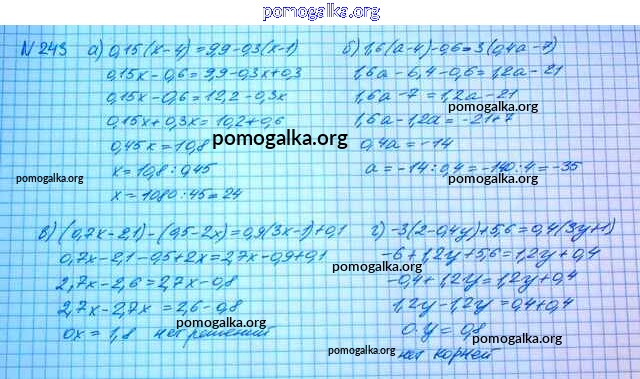 pomogalka.org
N 243 а) 0,15(х-4)=9,9-0,3(х-1)
0,15х-0,6=9,9-0,3х+0,3
0,15х-0,6=12,2-0,3х
0,15х+0,3х=10,2+0,6
0,45х=10,8
х=10,8:0,45
х=1080:45=24
б) 1,6(а-4)-0,6=3(0,4а-7)
1,6а-6,4-0,6=1,2а-21
1,6а-7=1,2а-21
1,6а-1,2а=-21+7
0,4а=-14
а=-14:0,4=-140:4=-35
в) (0,7х-2,1)-(0,5-2х)=0,9(3х-1)+0,1
0,7х-2,1-0,5+2х=2,7х-0,9+0,1
2,7х-2,6=2,7х-0,8
2,7х-2,7х=2,6-0,8
0х=1,8 нет решений
г) -3(2-0,4у)+5,6=0,4(3у+1)
-6+1,2у+5,6=1,2у+0,4
-0,4+1,2у=1,2у+0,4
1,2у-1,2у=0,4+0,4
0·у=0,8
нет корней
pomogalka.org
pomogalka.org
pomogalka.org
pomogalka.org
pomogalka.org
pomogalka.org
pomogalka.org
pomogalka.org